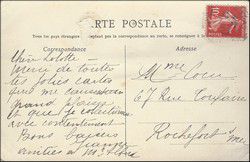 CARTE POSTALE
Tous les pays étrangers n'acceptent pas la correspondance au verso, se renseigner à la poste
Correspondance
Adresse
Chère Lolotte
Merci de toutes
tes jolies cartes
qui me causent un
grand plaisir
et que je collectionne
avec contentement
Bons baisers
Jeanne
amitiés à
Mme
67 Rue
Rochefort s/m